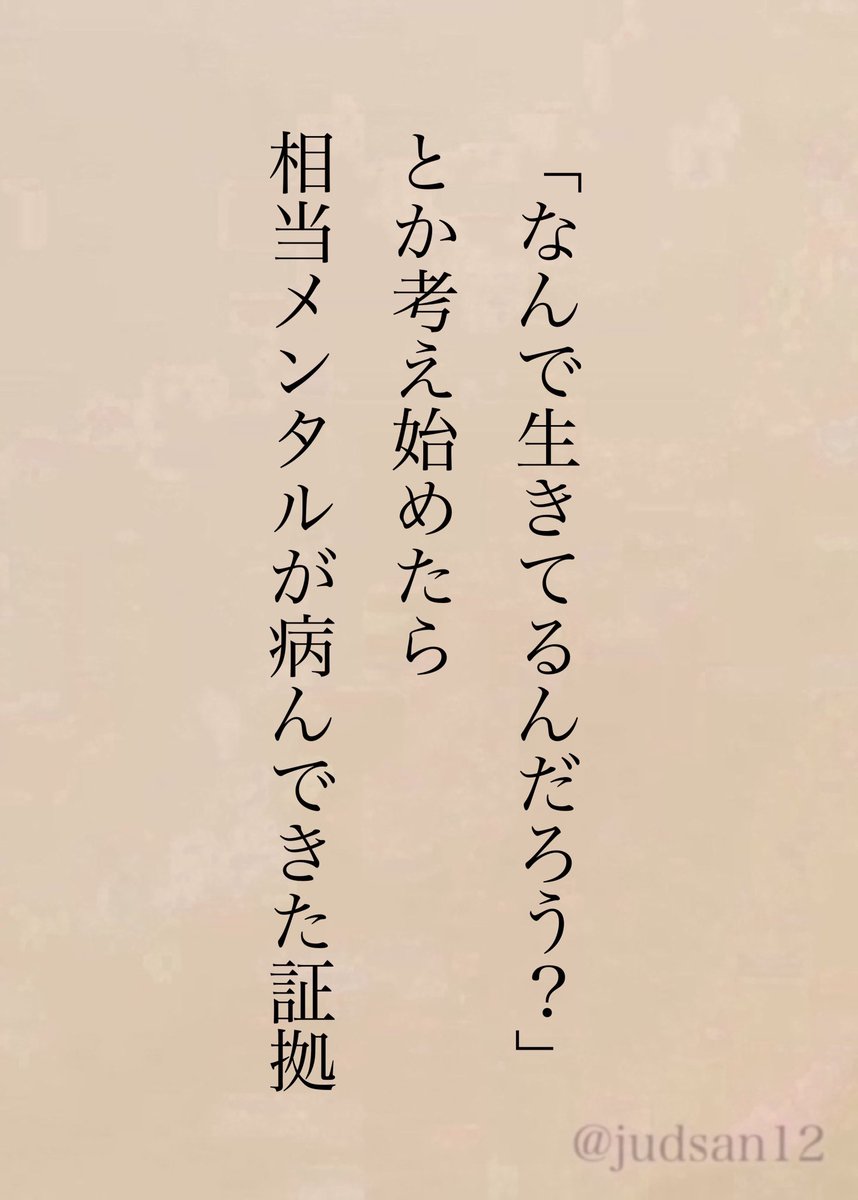 「なんで生きてるんだろう？」
とか考え始めたら
相当メンタルが病んできた証拠
@judsan12